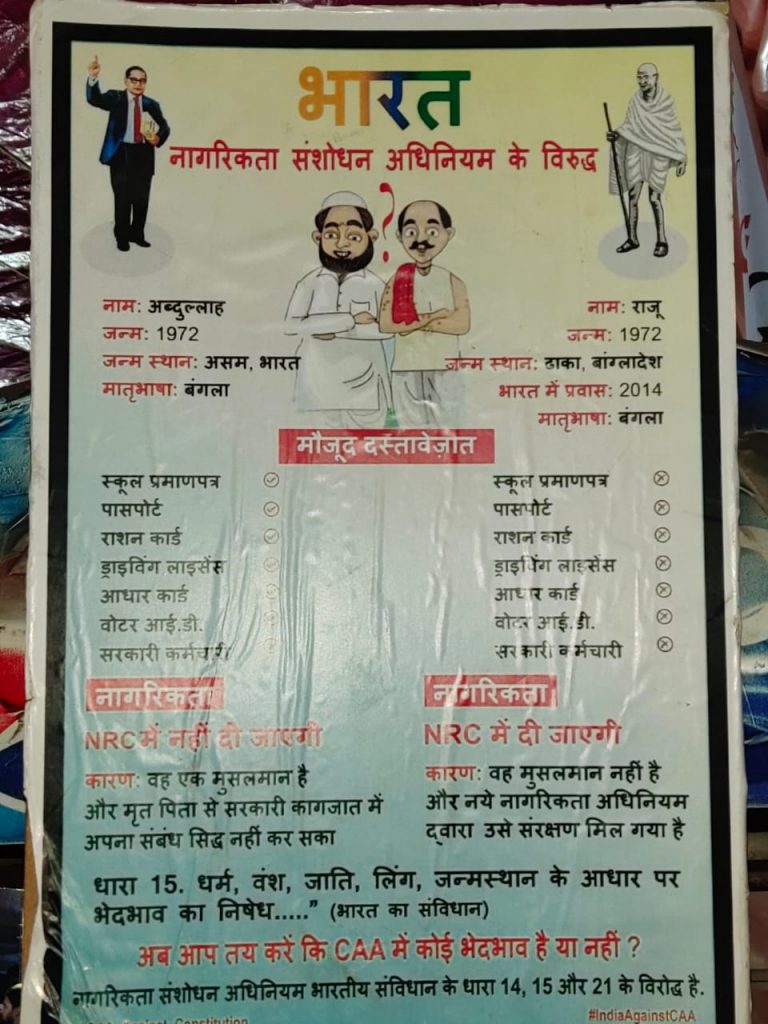 भारत
नागरिकता संशोधन अधिनियम के विरुद्ध
?
नाम: अब्दुल्लाह
जन्म: 1972
जन्म स्थान: असम, भारत
मातृभाषा: बंगला
नाम: राजू
जन्म: 1972
जन्म स्थान: ढाका, बांग्लादेश
भारत में प्रवास: 2014
मातृभाषा: बंगला
मौजूद दस्तावेज़ात
स्कूल प्रमाणपत्र
पासपोर्ट
राशन कार्ड
ड्राइविंग लाइसेंस
आधार कार्ड
वोटर आई.डी.
सरकारी कर्मचारी
स्कूल प्रमाणपत्र
पासपोर्ट
राशन कार्ड
ड्राइविंग लाइसेंस
आधार कार्ड
वोटर आई.डी.
सरकारी कर्मचारी
नागरिकता
NRC में नहीं दी जाएगी
कारण: वह एक मुसलमान है
और मृत पिता से सरकारी कागजात में
अपना संबंध सिद्ध नहीं कर सका
नागरिकता
NRC में दी जाएगी
कारण: वह मुसलमान नहीं है
और नये नागरिकता अधिनियम
द्वारा उसे संरक्षण मिल गया है
धारा 15. धर्म, वंश, जाति, लिंग, जन्मस्थान के आधार पर
भेदभाव का निषेध....." (भारत का संविधान)
अब आप तय करें कि CAA में कोई भेदभाव है या नहीं ?
नागरिकता संशोधन अधिनियम भारतीय संविधान के धारा 14, 15 और 21 के विरोद्ध है.
Constitution
#IndiaAgainstCAA